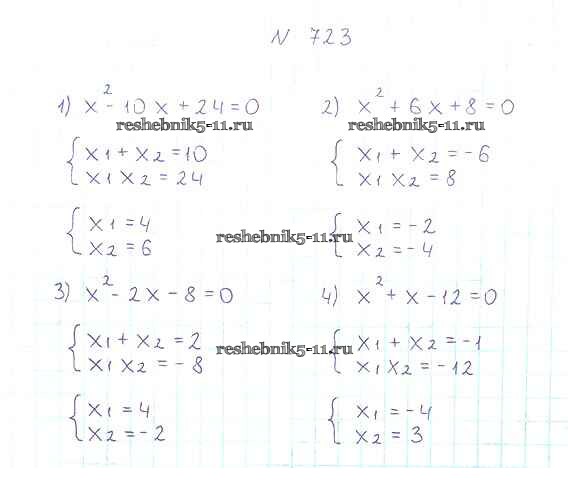 N 723
1) x² - 10x + 24 = 0
reshebnik5-11.ru
{ x1 + x2 = 10
x1 x2 = 24
{ x1 = 4
x2 = 6
2) x² + 6x + 8 = 0
reshebnik5-11.ru
{ x1 + x2 = -6
x1 x2 = 8
reshebnik5-11.ru
{ x1 = -2
x2 = -4
3) x² - 2x - 8 = 0
{ x1 + x2 = 2
x1 x2 = -8
{ x1 = 4
x2 = -2
4) x² + x - 12 = 0
reshebnik5-11.ru
{ x1 + x2 = -1
x1 x2 = -12
{ x1 = -4
x2 = 3